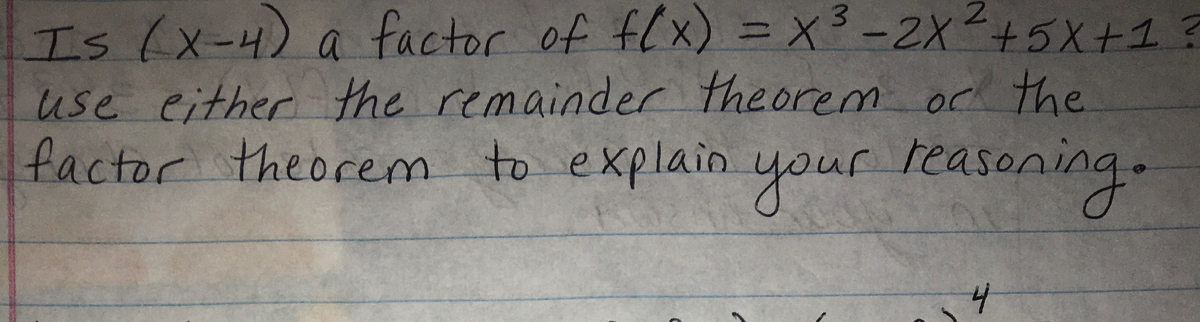 Is (x-4) a factor of f(x) = x³-2x²+5x+1?
use either the remainder theorem or the
factor theorem to explain your reasoning.
4